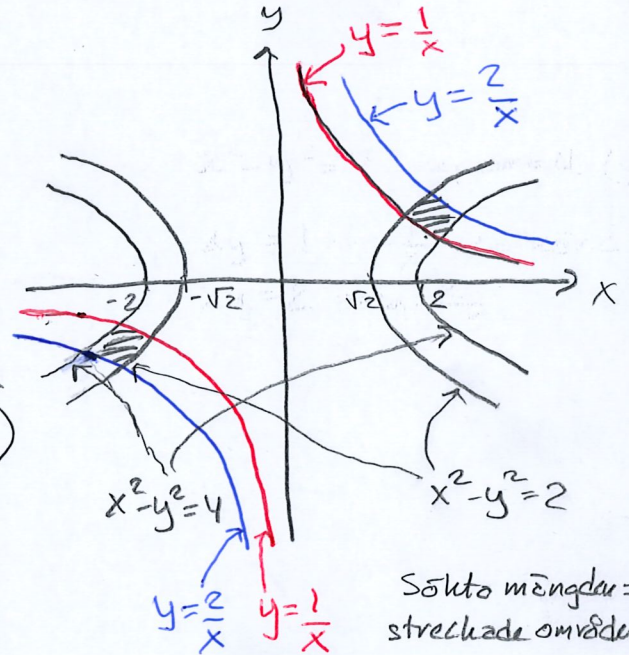 y
y = 1/x
y = 2/x
-2
-√2
√2
2
x
x²-y²=4
x²-y²=2
y = 2/x
y = 1/x
Sökta mängden =
streckade område